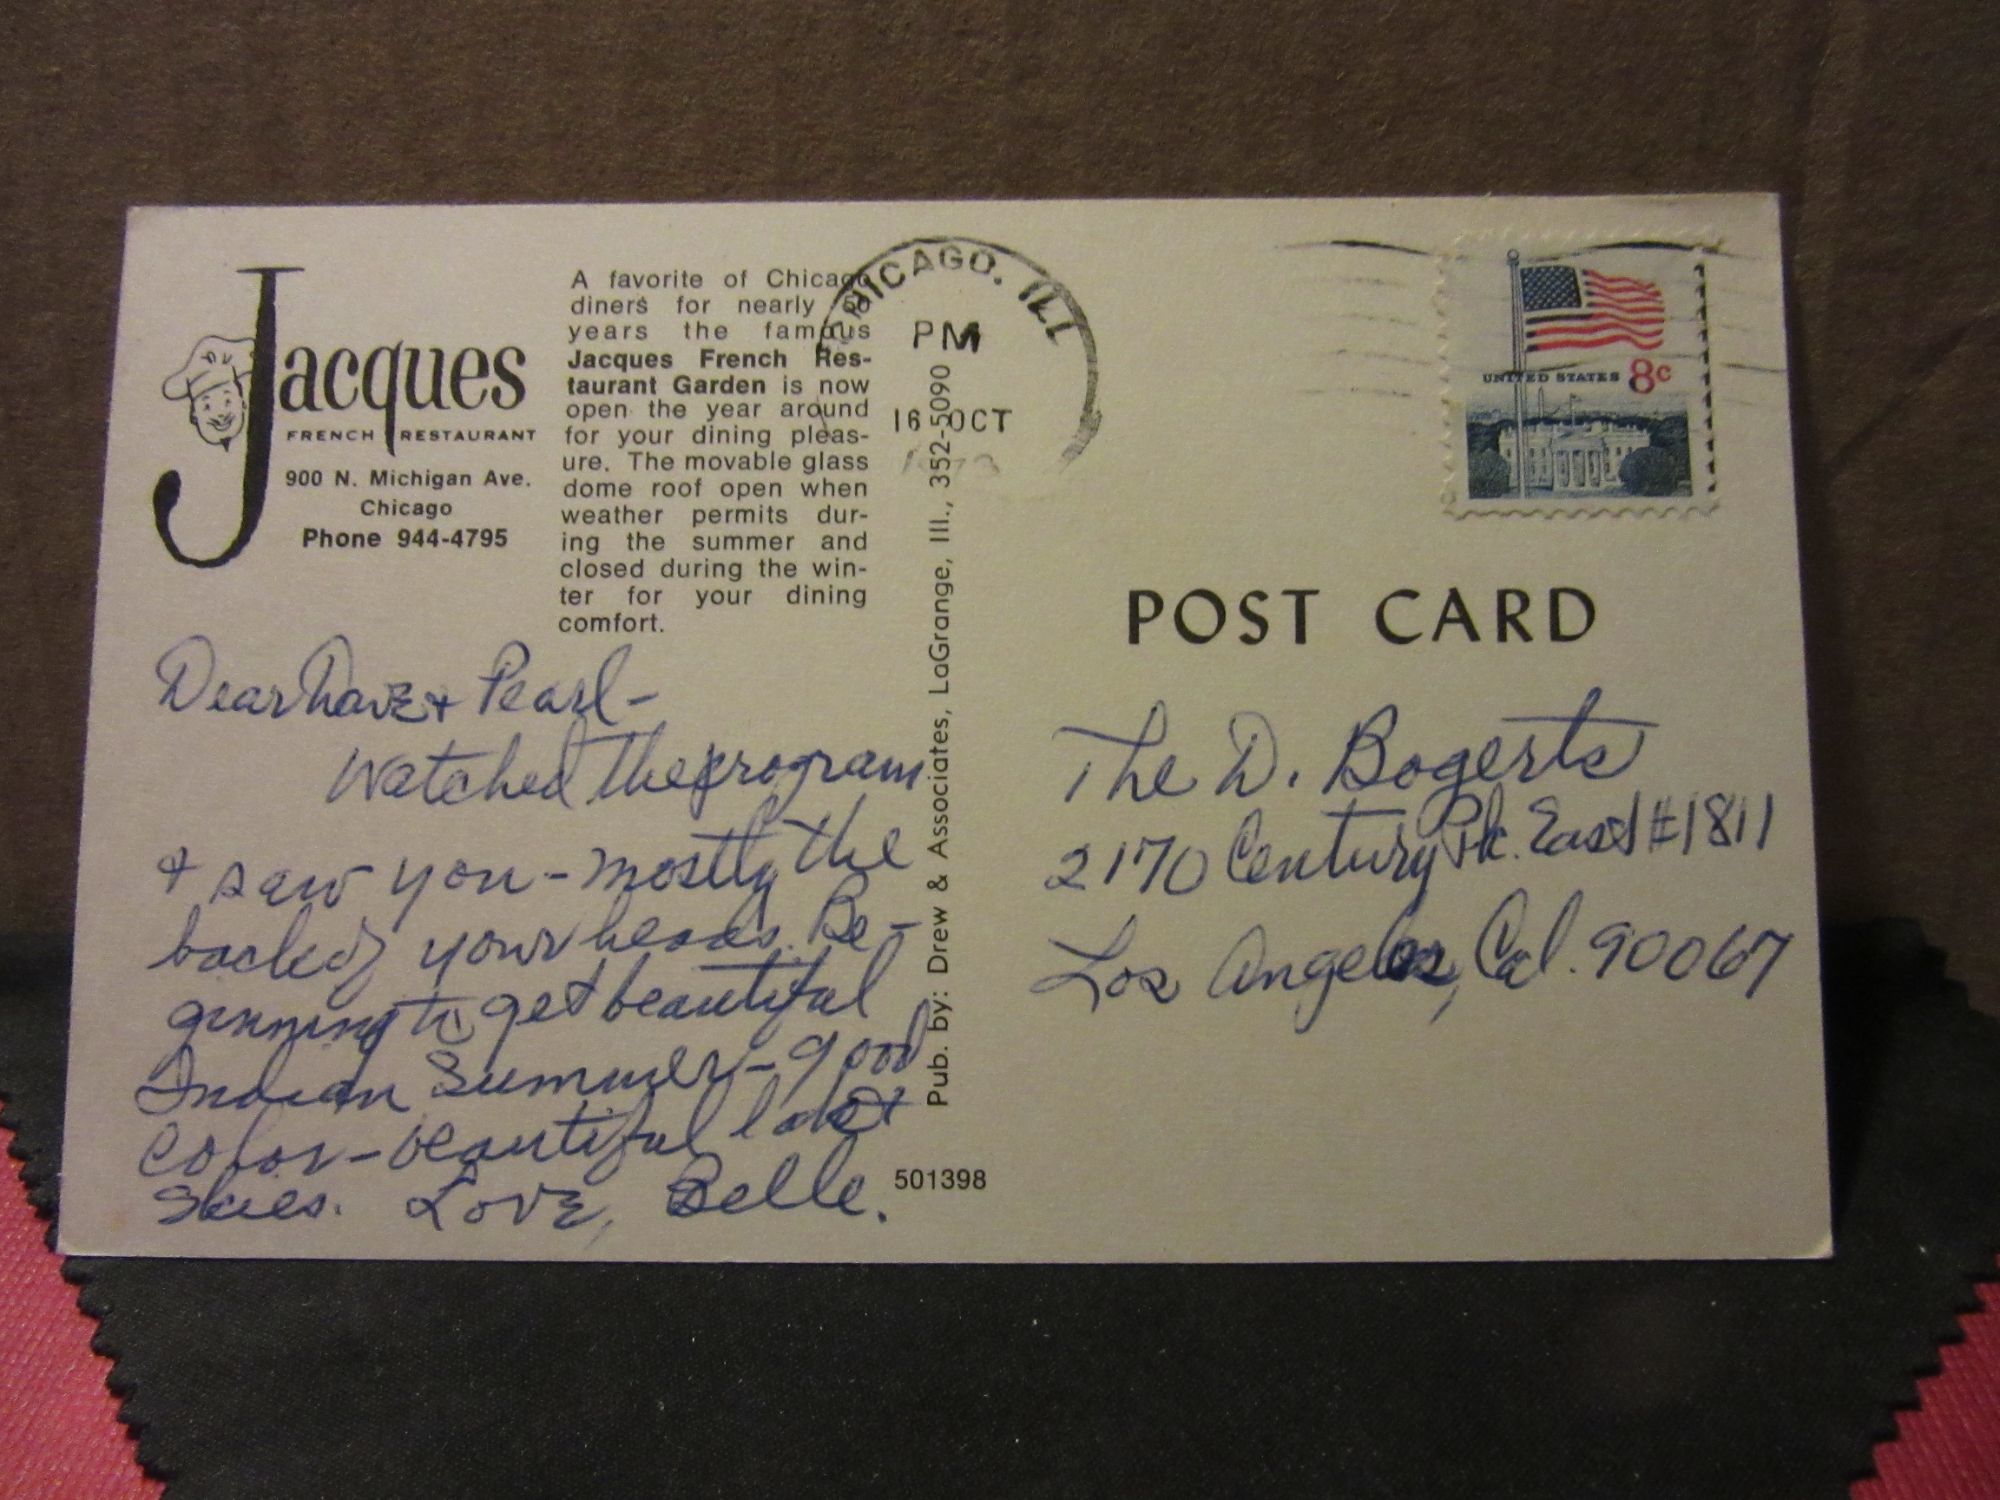 Jacques
FRENCH RESTAURANT
900 N. Michigan Ave.
Chicago
Phone 944-4795
A favorite of Chicago
diners for nearly 50
years the famous
Jacques French Res-
taurant Garden is now
open the year around
for your dining pleas-
ure. The movable glass
dome roof open when
weather permits dur-
ing the summer and
closed during the win-
ter for your dining
comfort.
CHICAGO, ILL
PM
16 OCT
1973
UNITED STATES 8c
POST CARD
Dear Dave + Pearl -
Watched the program
+ saw you - mostly the
back of your heads. Be-
ginning to get beautiful
Indian Summer - good
color - beautiful
Skies. Love, Belle.
Pub. by: Drew & Associates, LaGrange, Ill., 352-5090
501398
The D. Bogerts
2170 Century Pk. East #1811
Los Angeles, Cal. 90067